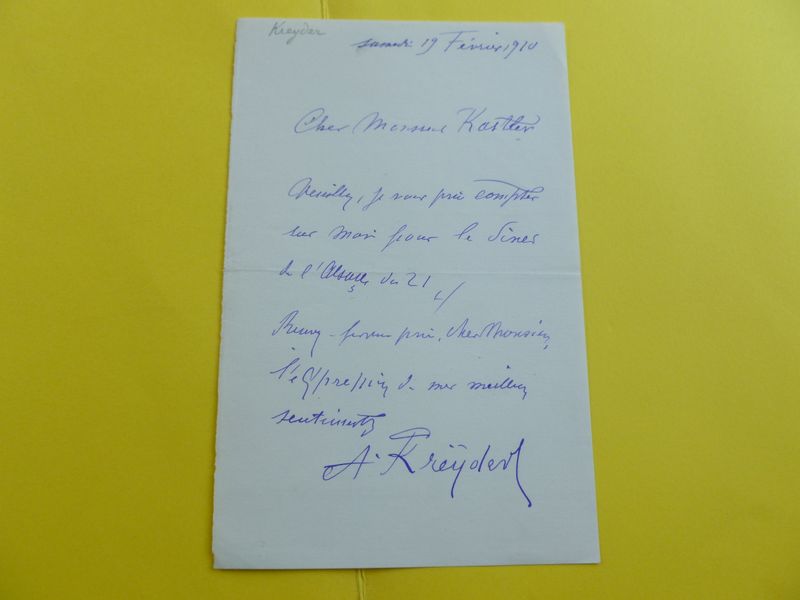 Kreyder
samedi 19 Février 1910
Cher Monsieur Kastler
Veuillez, je vous prie compter
sur moi pour le Diner
de l'Alsace du 21 c/
Recevez je vous prie, cher Monsieur,
l'expression de mes meilleurs
sentiments
A. Kreÿder